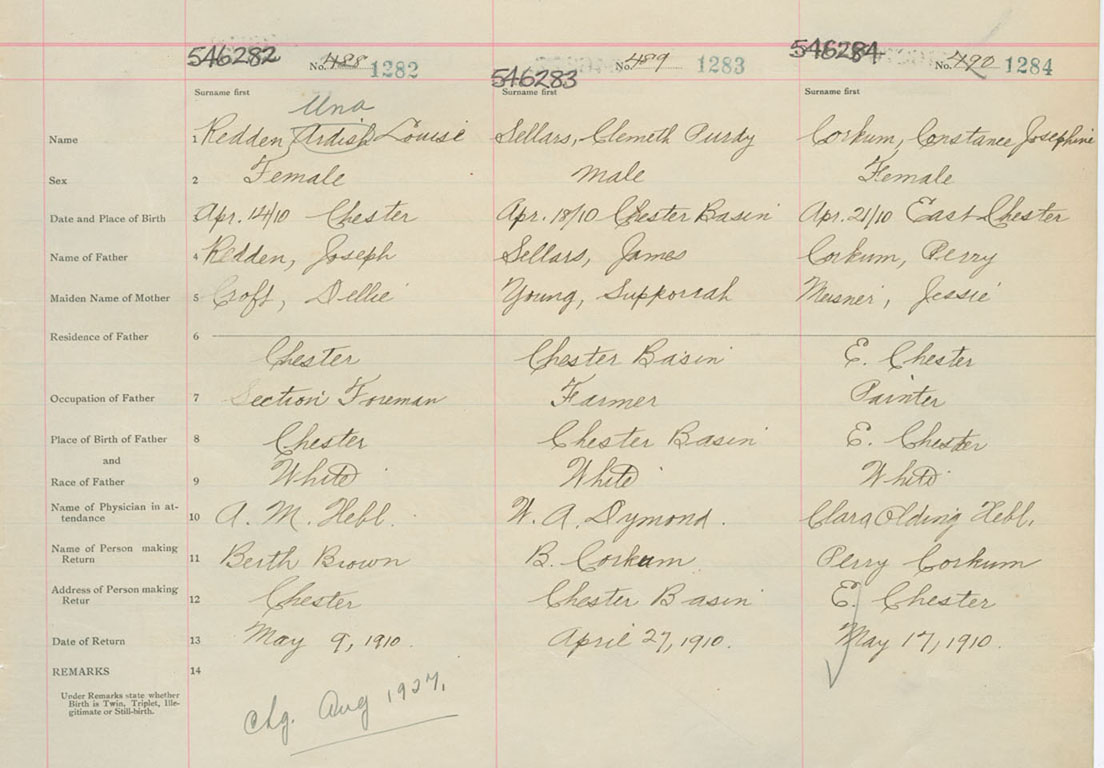 546282 No. 488 1282 546283 No. 489 1283 546284 No. 490 1284
Surname first Surname first Surname first
Una
Name 1 Redden, Ardish Louise Sellars, Clemeth Purdy Corkum, Constance Josephine
Sex 2 Female Male Female
Date and Place of Birth Apr. 14/10 Chester Apr. 18/10 Chester Basin Apr. 21/10 East Chester
Name of Father 4 Redden, Joseph Sellars, James Corkum, Perry
Maiden Name of Mother 5 Croft, Dellie Young, Supporrah Meisner, Jessie
Residence of Father 6
Chester Chester Basin E. Chester
Occupation of Father 7 Section Foreman Farmer Painter
Place of Birth of Father 8 Chester Chester Basin E. Chester
and
Race of Father 9 White White White
Name of Physician in at-
tendance 10 A. M. Hebb. W. A. Dymond. Clara Olding Hebb.
Name of Person making
Return 11 Berth Brown B. Corkum Perry Corkum
Address of Person making
Retur 12 Chester Chester Basin E. Chester
Date of Return 13 May 9, 1910. April 27, 1910. May 17, 1910.
REMARKS 14
Under Remarks state whether
Birth is Twin, Triplet, Ille-
gitimate or Still-birth.
chg. Aug 1927.